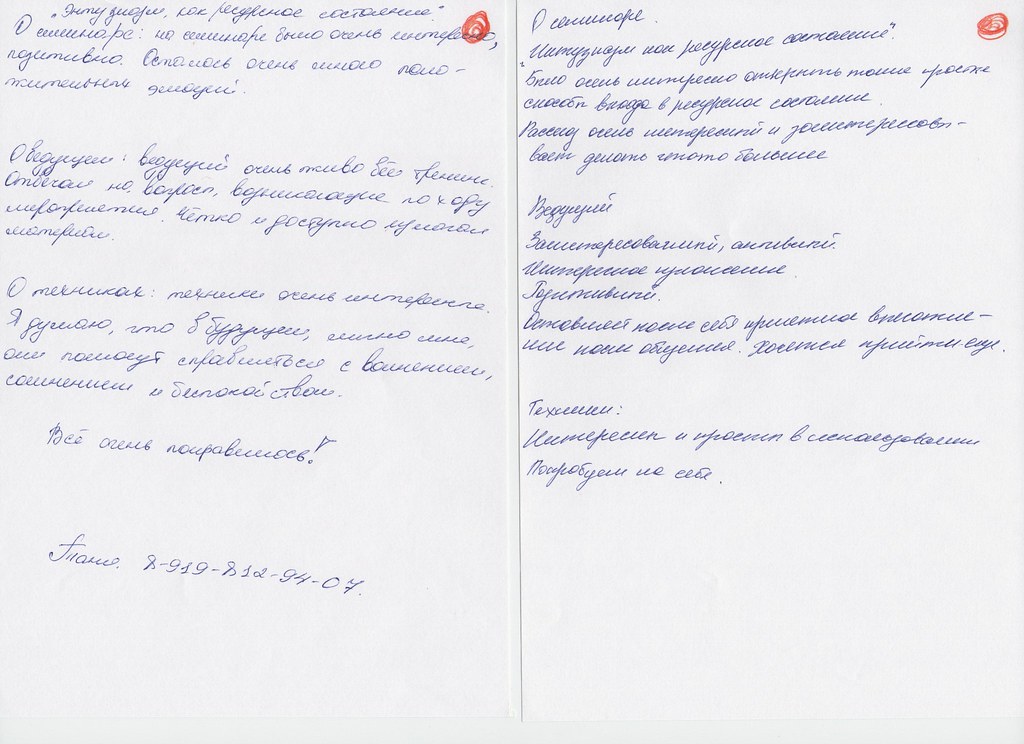 "Энтузиазм, как ресурсное состояние".
О семинаре: на семинаре было очень интересно,
позитивно. Осталось очень много поло-
жительных эмоций.
О ведущем: ведущий очень живо вёл тренинг.
Отвечал на вопросы, возникающие по ходу
мероприятия. Чётко и доступно излагал
материал.
О техниках: техники очень интересные.
Я думаю, что в будущем, лично мне,
они помогут справляться с волнением,
сомнением и беспокойством.
Всё очень понравилось!
Таня. 8-919-812-94-07.
О семинаре.
"Энтузиазм как ресурсное состояние".
Было очень интересно открыть такие простые
способы входа в ресурсное состояние.
Рассказ очень интересный и заинтересовы-
вает делать что-то большее
Ведущий
Заинтересованный, активный.
Интересное изложение.
Позитивный.
Оставляет после себя приятное впечатле-
ние после общения. Хочется прийти еще.
Техники:
Интересны и просты в использовании
Попробуем на себе.